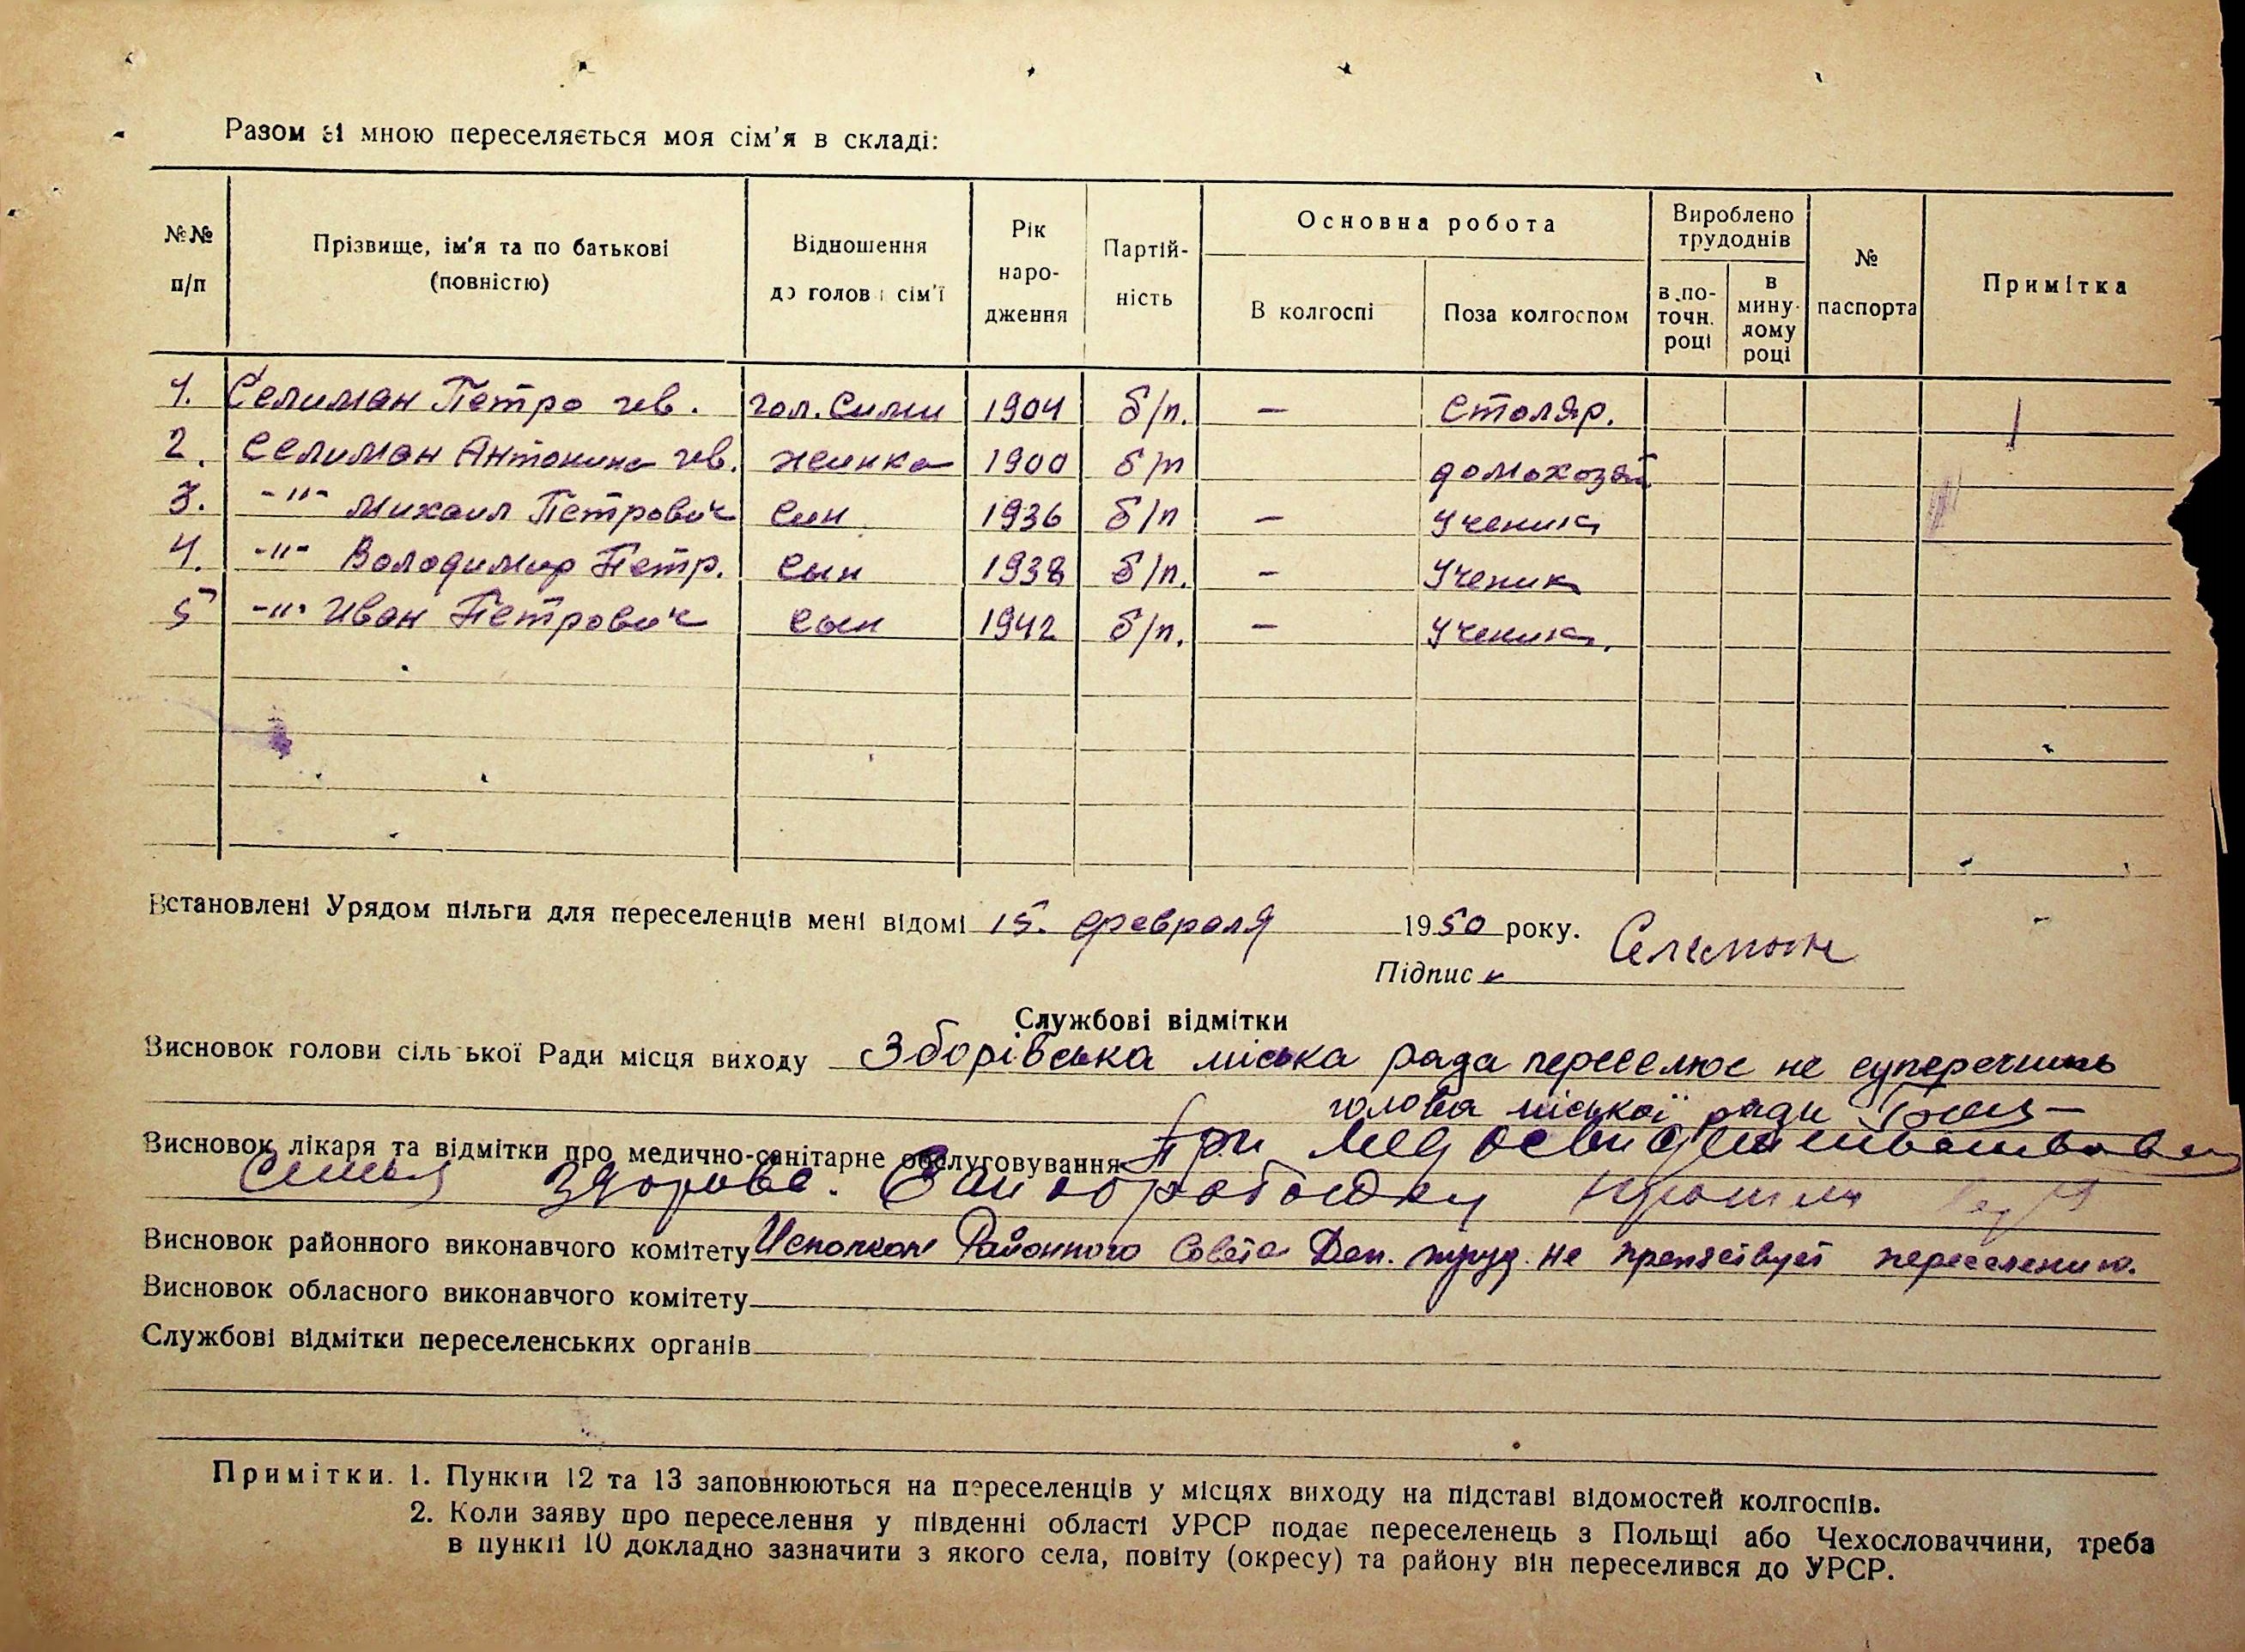 Разом зі мною переселяється моя сім'я в складі:
№№ п/п
Прізвище, ім'я та по батькові (повністю)
Відношення до голови сім'ї
Рік народження
Партійність
Основна робота
В колгоспі
Поза колгоспом
Вироблено трудоднів
в поточн. році
в минулому році
№ паспорта
Примітка
1. Селиман Петро гев. гол. сими 1904 б/п. — столяр.
2. Селиман Антонина гев. жинка 1900 б/п домохозяй
3. -"- Михаил Петрович син 1936 б/п — Ученик
4. -"- Володимир Петр. сын 1938 б/п. — Ученик
5 -"- Иван Петрович сын 1942 б/п. — Ученик.
Встановлені Урядом пільги для переселенців мені відомі 15. февраля 1950 року.
Підпис Селемон
Службові відмітки
Висновок голови сільської Ради місця виходу Зборівська міська рада переселює не суперечить
голова міської ради
Висновок лікаря та відмітки про медично-санітарне обслуговування При мед освидетельствовании
Семья здорова. Сан обработку прошли
Висновок районного виконавчого комітету Исполком Районного Совета Деп. труд. не препятствует переселению.
Висновок обласного виконавчого комітету
Службові відмітки переселенських органів
Примітки. 1. Пункти 12 та 13 заповнюються на переселенців у місцях виходу на підставі відомостей колгоспів.
2. Коли заяву про переселення у південні області УРСР подає переселенець з Польщі або Чехословаччини, треба
в пункті 10 докладно зазначити з якого села, повіту (окресу) та району він переселився до УРСР.